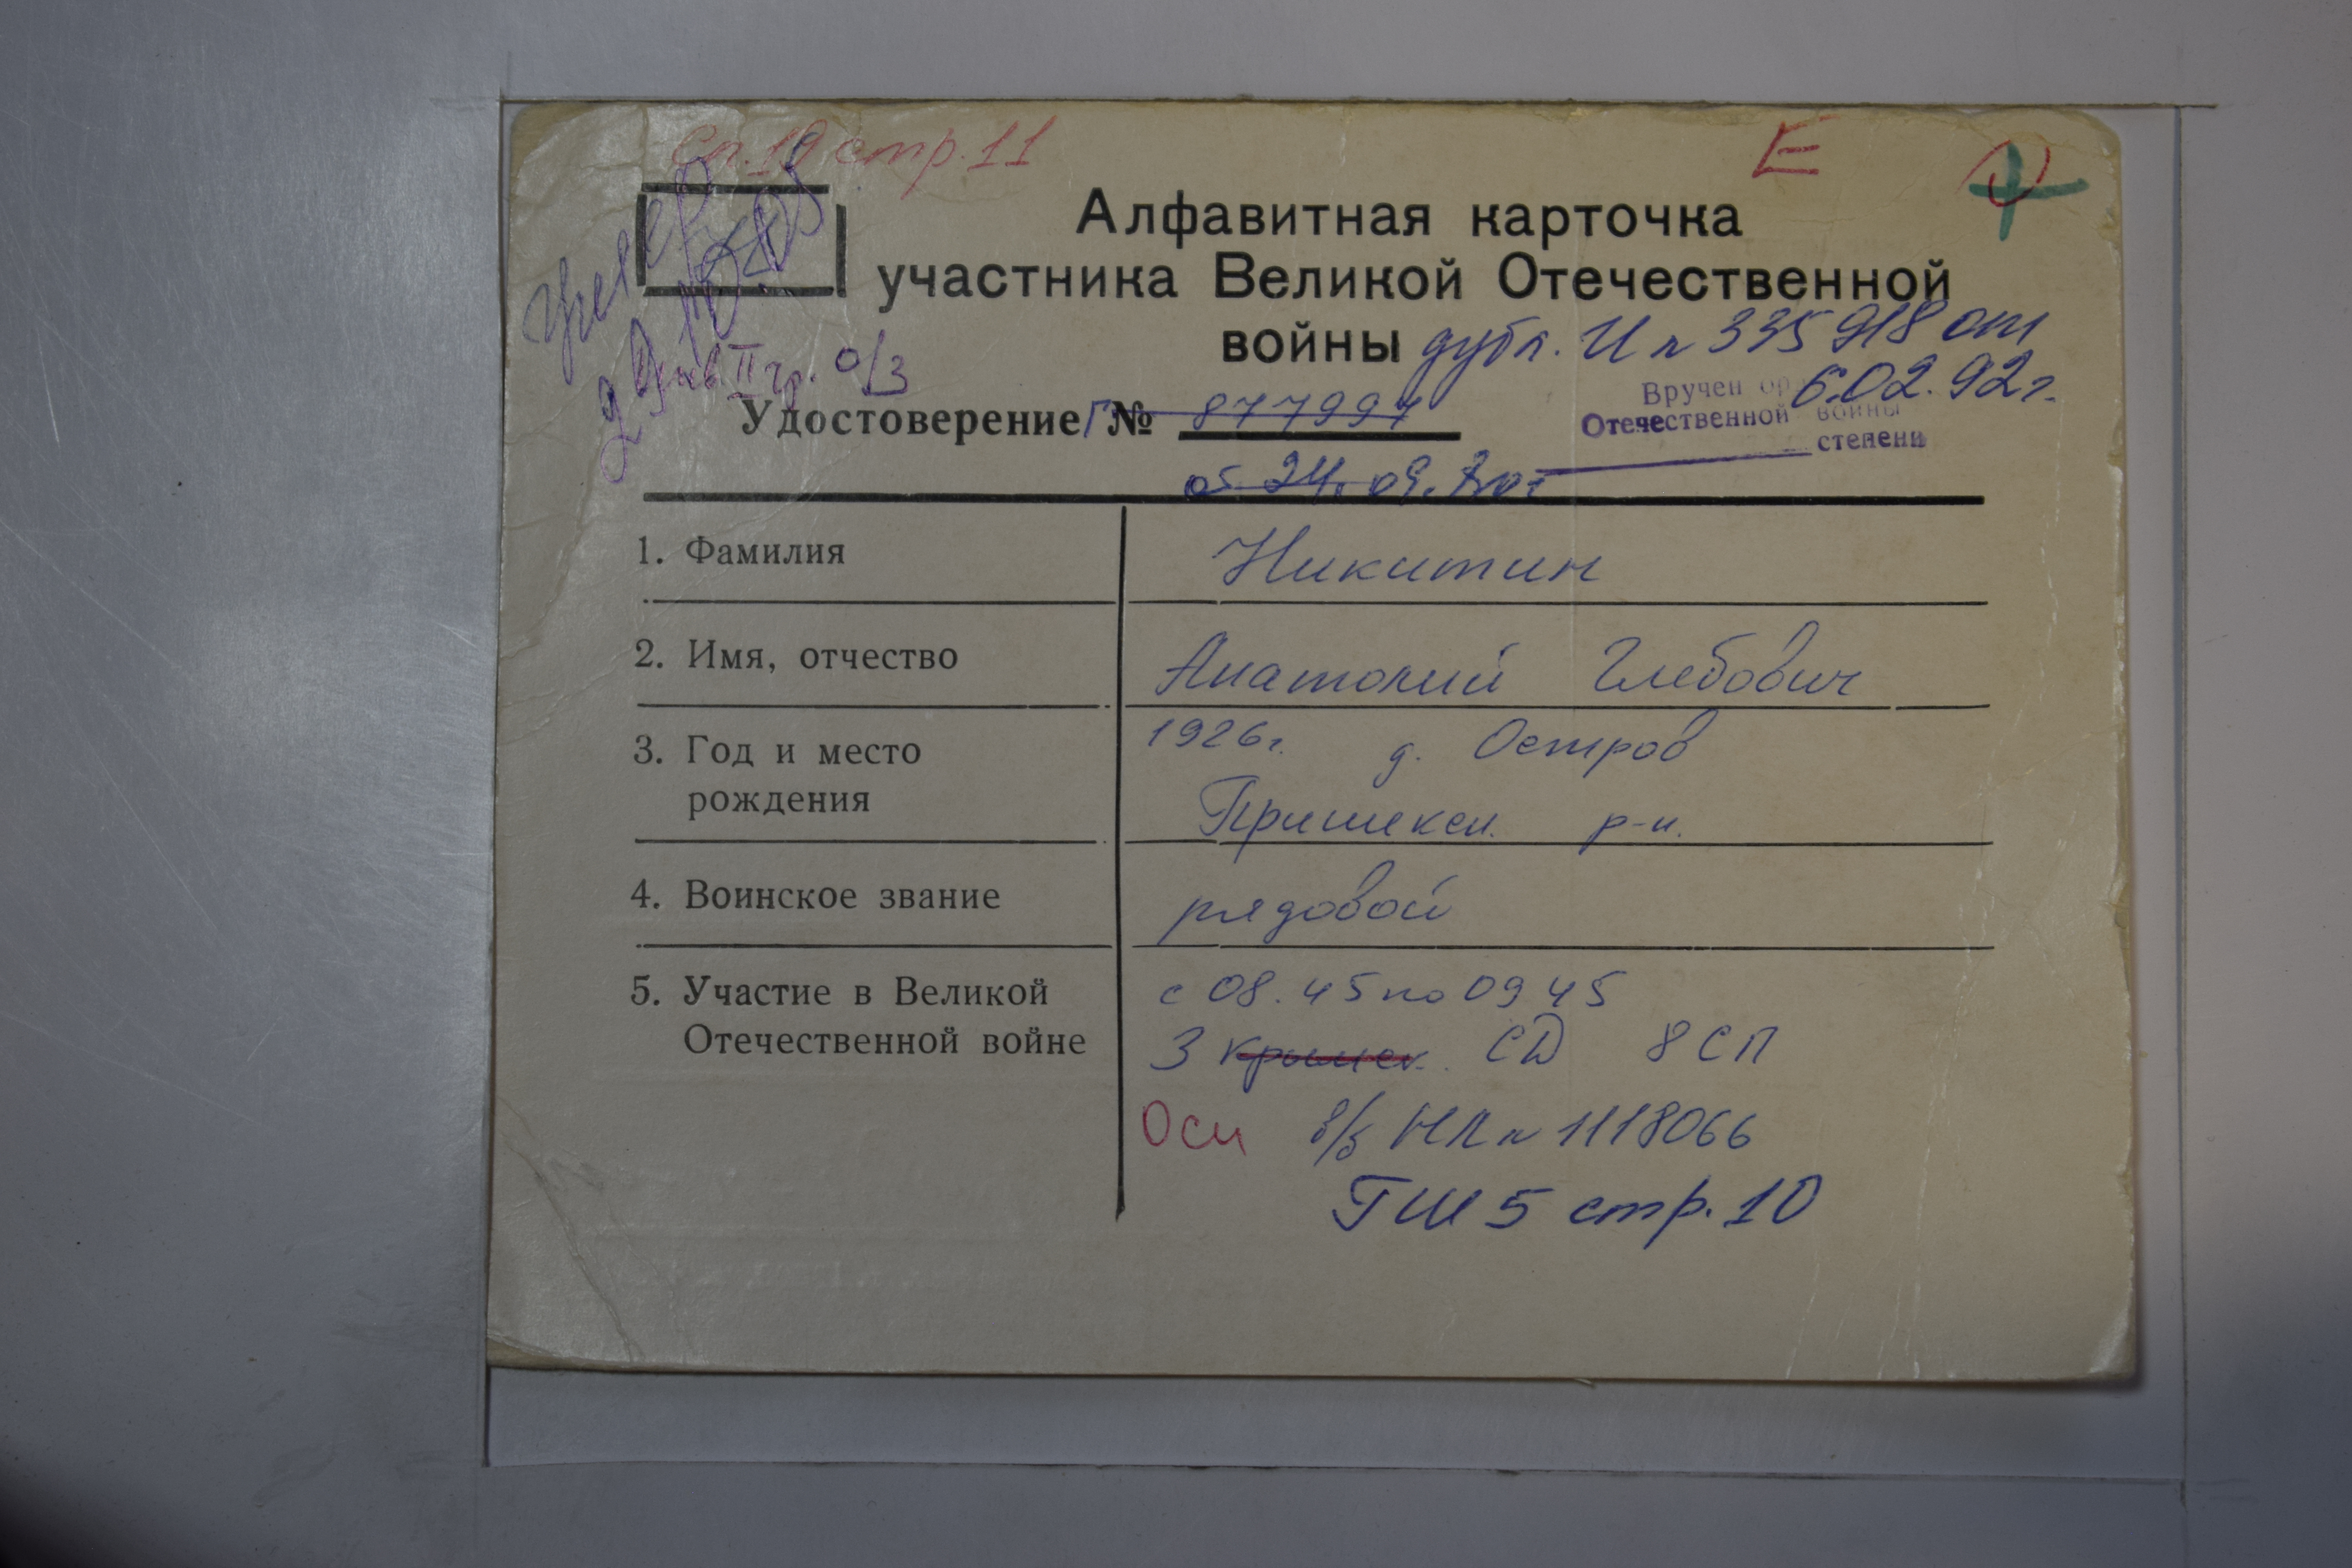 Сп. 19 стр. 11 Е
Алфавитная карточка
участника Великой Отечественной
войны дубл. И № 335918 от
6.02.92г.
Инв II гр. о/з
Удостоверение Г № 877997
Вручен
Отечественной войны
степени
от 24. 09.
1. Фамилия Никитин
2. Имя, отчество Анатолий Глебович
3. Год и место 1926г. д. Остров
рождения Пришекси. р-н.
4. Воинское звание рядовой
5. Участие в Великой с 08.45 по 09 45
Отечественной войне 3 СД 8 СП
в/б НЛ № 1118066
ГШ 5 стр. 10